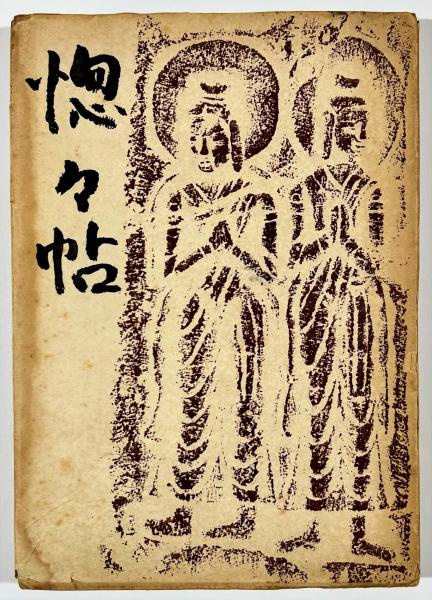 惚々帖